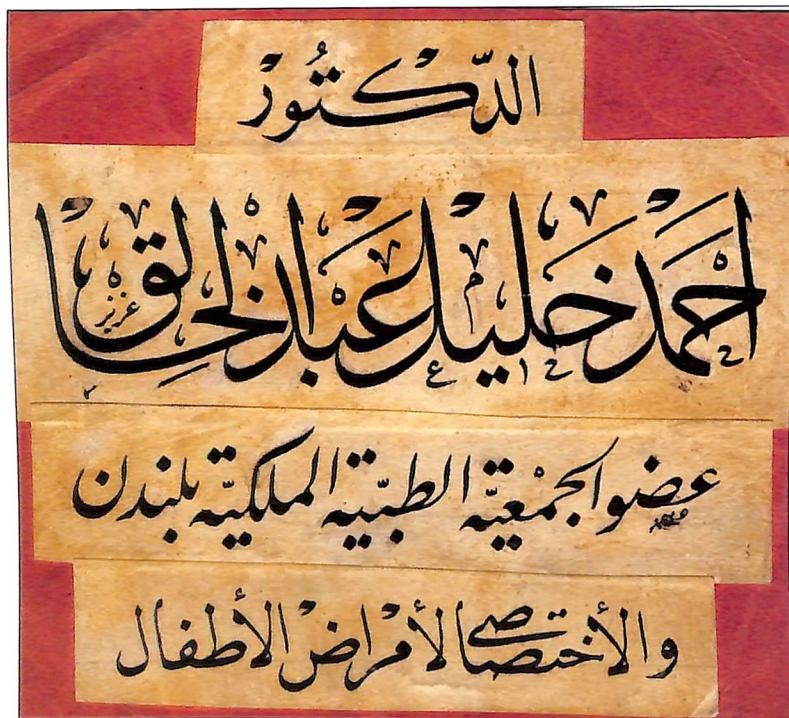 الدّكتُورْ
احمَدْ خليل عبدالخالق
عزيز
عضو الجمْعيّة الطبيّة الملكيّة بلندن
والأختصاصي لأمْراضْ الأطفال